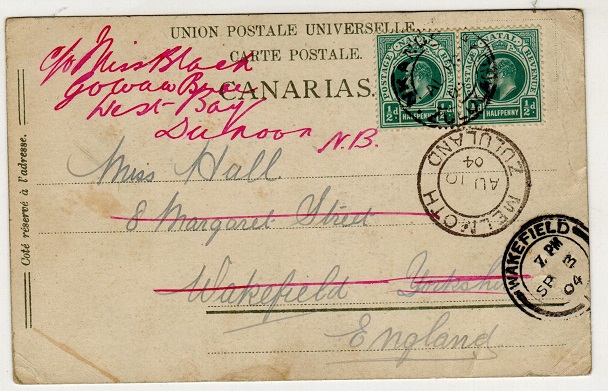 UNION POSTALE UNIVERSELLE
CARTE POSTALE.
CANARIAS.
Coté réservé à l'adresse.
c/o Miss Black
West Bay
Dunoon N.B.
Miss Hall
8 Margaret Street
Wakefield Yorkshire
England
POSTAGE NATAL REVENUE
½d HALFPENNY ½d
POSTAGE NATAL REVENUE
½d HALFPENNY ½d
MELMOTH ZULULAND
AU 10
04
WAKEFIELD
7 PM
SP 3
04